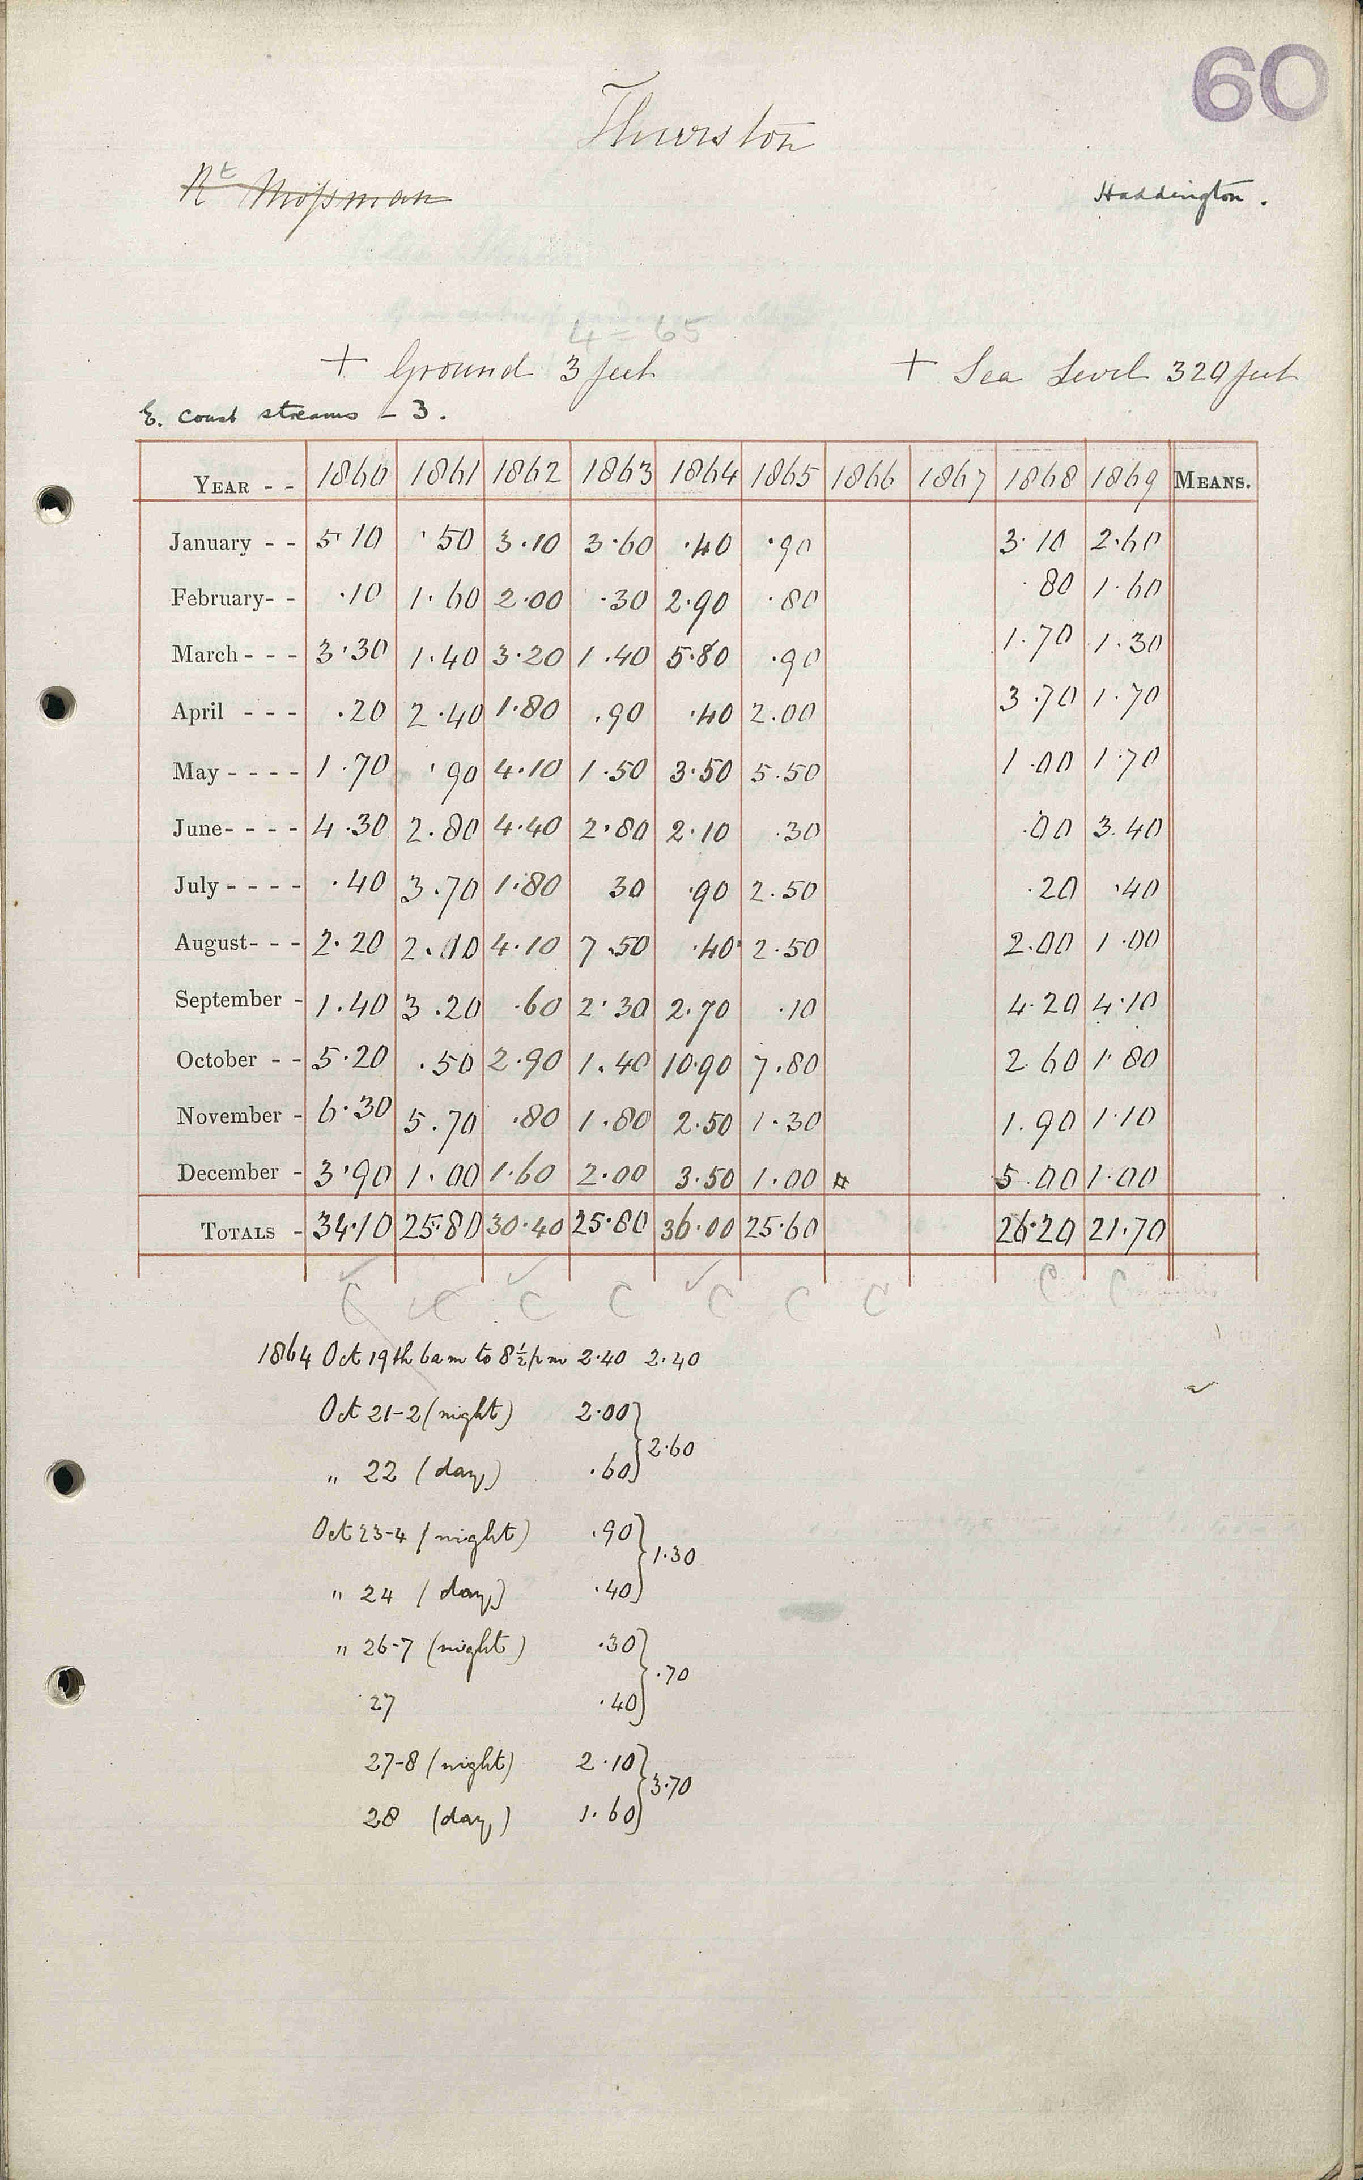 60
Thurston
Rt Mossman
Haddington.
4 = 65
+ Ground 3 feet + Sea Level 320 feet
E. coast streams - 3.
YEAR - - 1860 1861 1862 1863 1864 1865 1866 1867 1868 1869 MEANS.
January - - 5.10 .50 3.10 3.60 .40 .90 3.10 2.60
February- - .10 1.60 2.00 .30 2.90 .80 .80 1.60
March - - - 3.30 1.40 3.20 1.40 5.80 .90 1.70 1.30
April - - - .20 2.40 1.80 .90 .40 2.00 3.70 1.70
May - - - - 1.70 .90 4.10 1.50 3.50 5.50 1.00 1.70
June- - - - 4.30 2.80 4.40 2.80 2.10 .30 .00 3.40
July - - - - .40 3.70 1.80 30 .90 2.50 .20 .40
August- - - 2.20 2.10 4.10 7.50 .40 2.50 2.00 1.00
September - 1.40 3.20 .60 2.30 2.70 .10 4.20 4.10
October - - 5.20 .50 2.90 1.40 10.90 7.80 2.60 1.80
November - 6.30 5.70 .80 1.80 2.50 1.30 1.90 1.10
December - 3.90 1.00 1.60 2.00 3.50 1.00 5.00 1.00
TOTALS - 34.10 25.80 30.40 25.80 36.00 25.60 26.20 21.70
C C C C C C C C C
1864 Oct 19th 6am to 8½pm 2.40 2.40
Oct 21-2 (night) 2.00
2.60
" 22 (day) .60
Oct 23-4 (night) .90
1.30
" 24 (day) .40
" 26-7 (night) .30
.70
27 .40
27-8 (night) 2.10
3.70
28 (day) 1.60